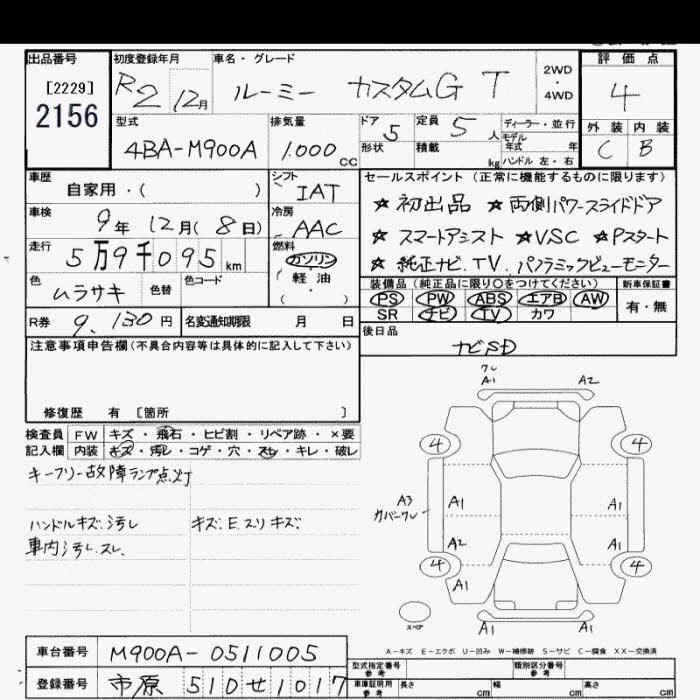 出品番号 初度登録年月 車名・グレード 評価点
[2229] R2 12月 ルーミー カスタムG T 2WD・4WD 4
2156
型式 排気量 ドア 定員 ディーラー・並行 外装 内装
4BA-M900A 1.000 CC 5 5人 モデル年式 年 C B
形状 積載 kg ハンドル 左・右
車歴 シフト セールスポイント(正常に機能するものに限ります)
自家用・( ) IAT ☆初出品 ☆両側パワースライドドア
車検 冷房
9年 12月(8日) AAC ☆スマートアシスト ☆VSC ☆Pスタート
走行 燃料
5万9千095km ガソリン ☆純正ナビ.TV.パノラミックビューモニター
軽油
色 色替 色コード 装備品(純正品に限り○をつけてください) 新車保証書
ムラサキ PS PW ABS エアB AW 有・無
SR ナビ TV カワ
R券 9.130円 名変通知期限 月 日 後日品
注意事項申告欄(不具合内容等は具体的に記入して下さい) ナビSD
修復歴 有 [箇所 ]
検査員 FW キズ・飛石・ヒビ割・リペア跡・×要
記入欄 内装 キズ・汚レ・コゲ・穴・スレ・キレ・破レ
キーフリー故障ランプ点灯
ハンドルキズ.汚レ キズ:E.スリキズ
車内汚レ.スレ
ワレ
A1 A2
4 4
A3 A1 A1
カバーワレ
A2 A1
4 4
A1
スペア A1 A1
A-キズ E-エクボ U-凹み W-補修跡 S-サビ C-腐食 XX-交換済
車台番号 M900A-0511005
型式指定番号 参考 類別区分番号 参考
登録番号 市原 510 せ 1017
車庫証明用 参考 長さ cm 幅 cm 高さ cm